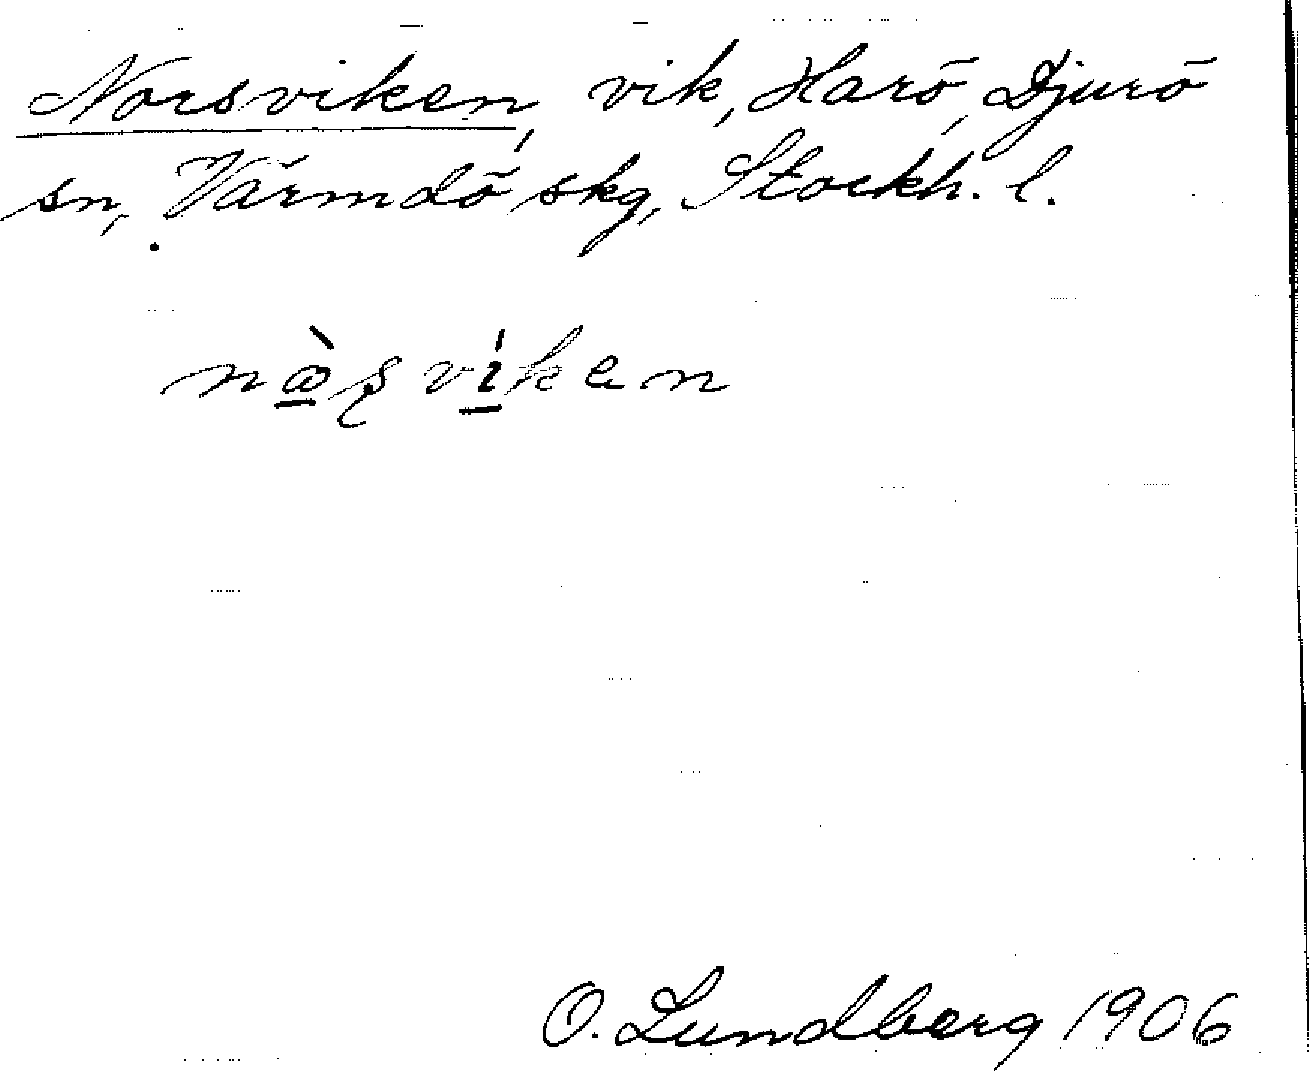 Norsviken, vik, Harö, Djurö
sn, Värmdö skg, Stockh. l.
nὼʂvíken
O. Lundberg 1906